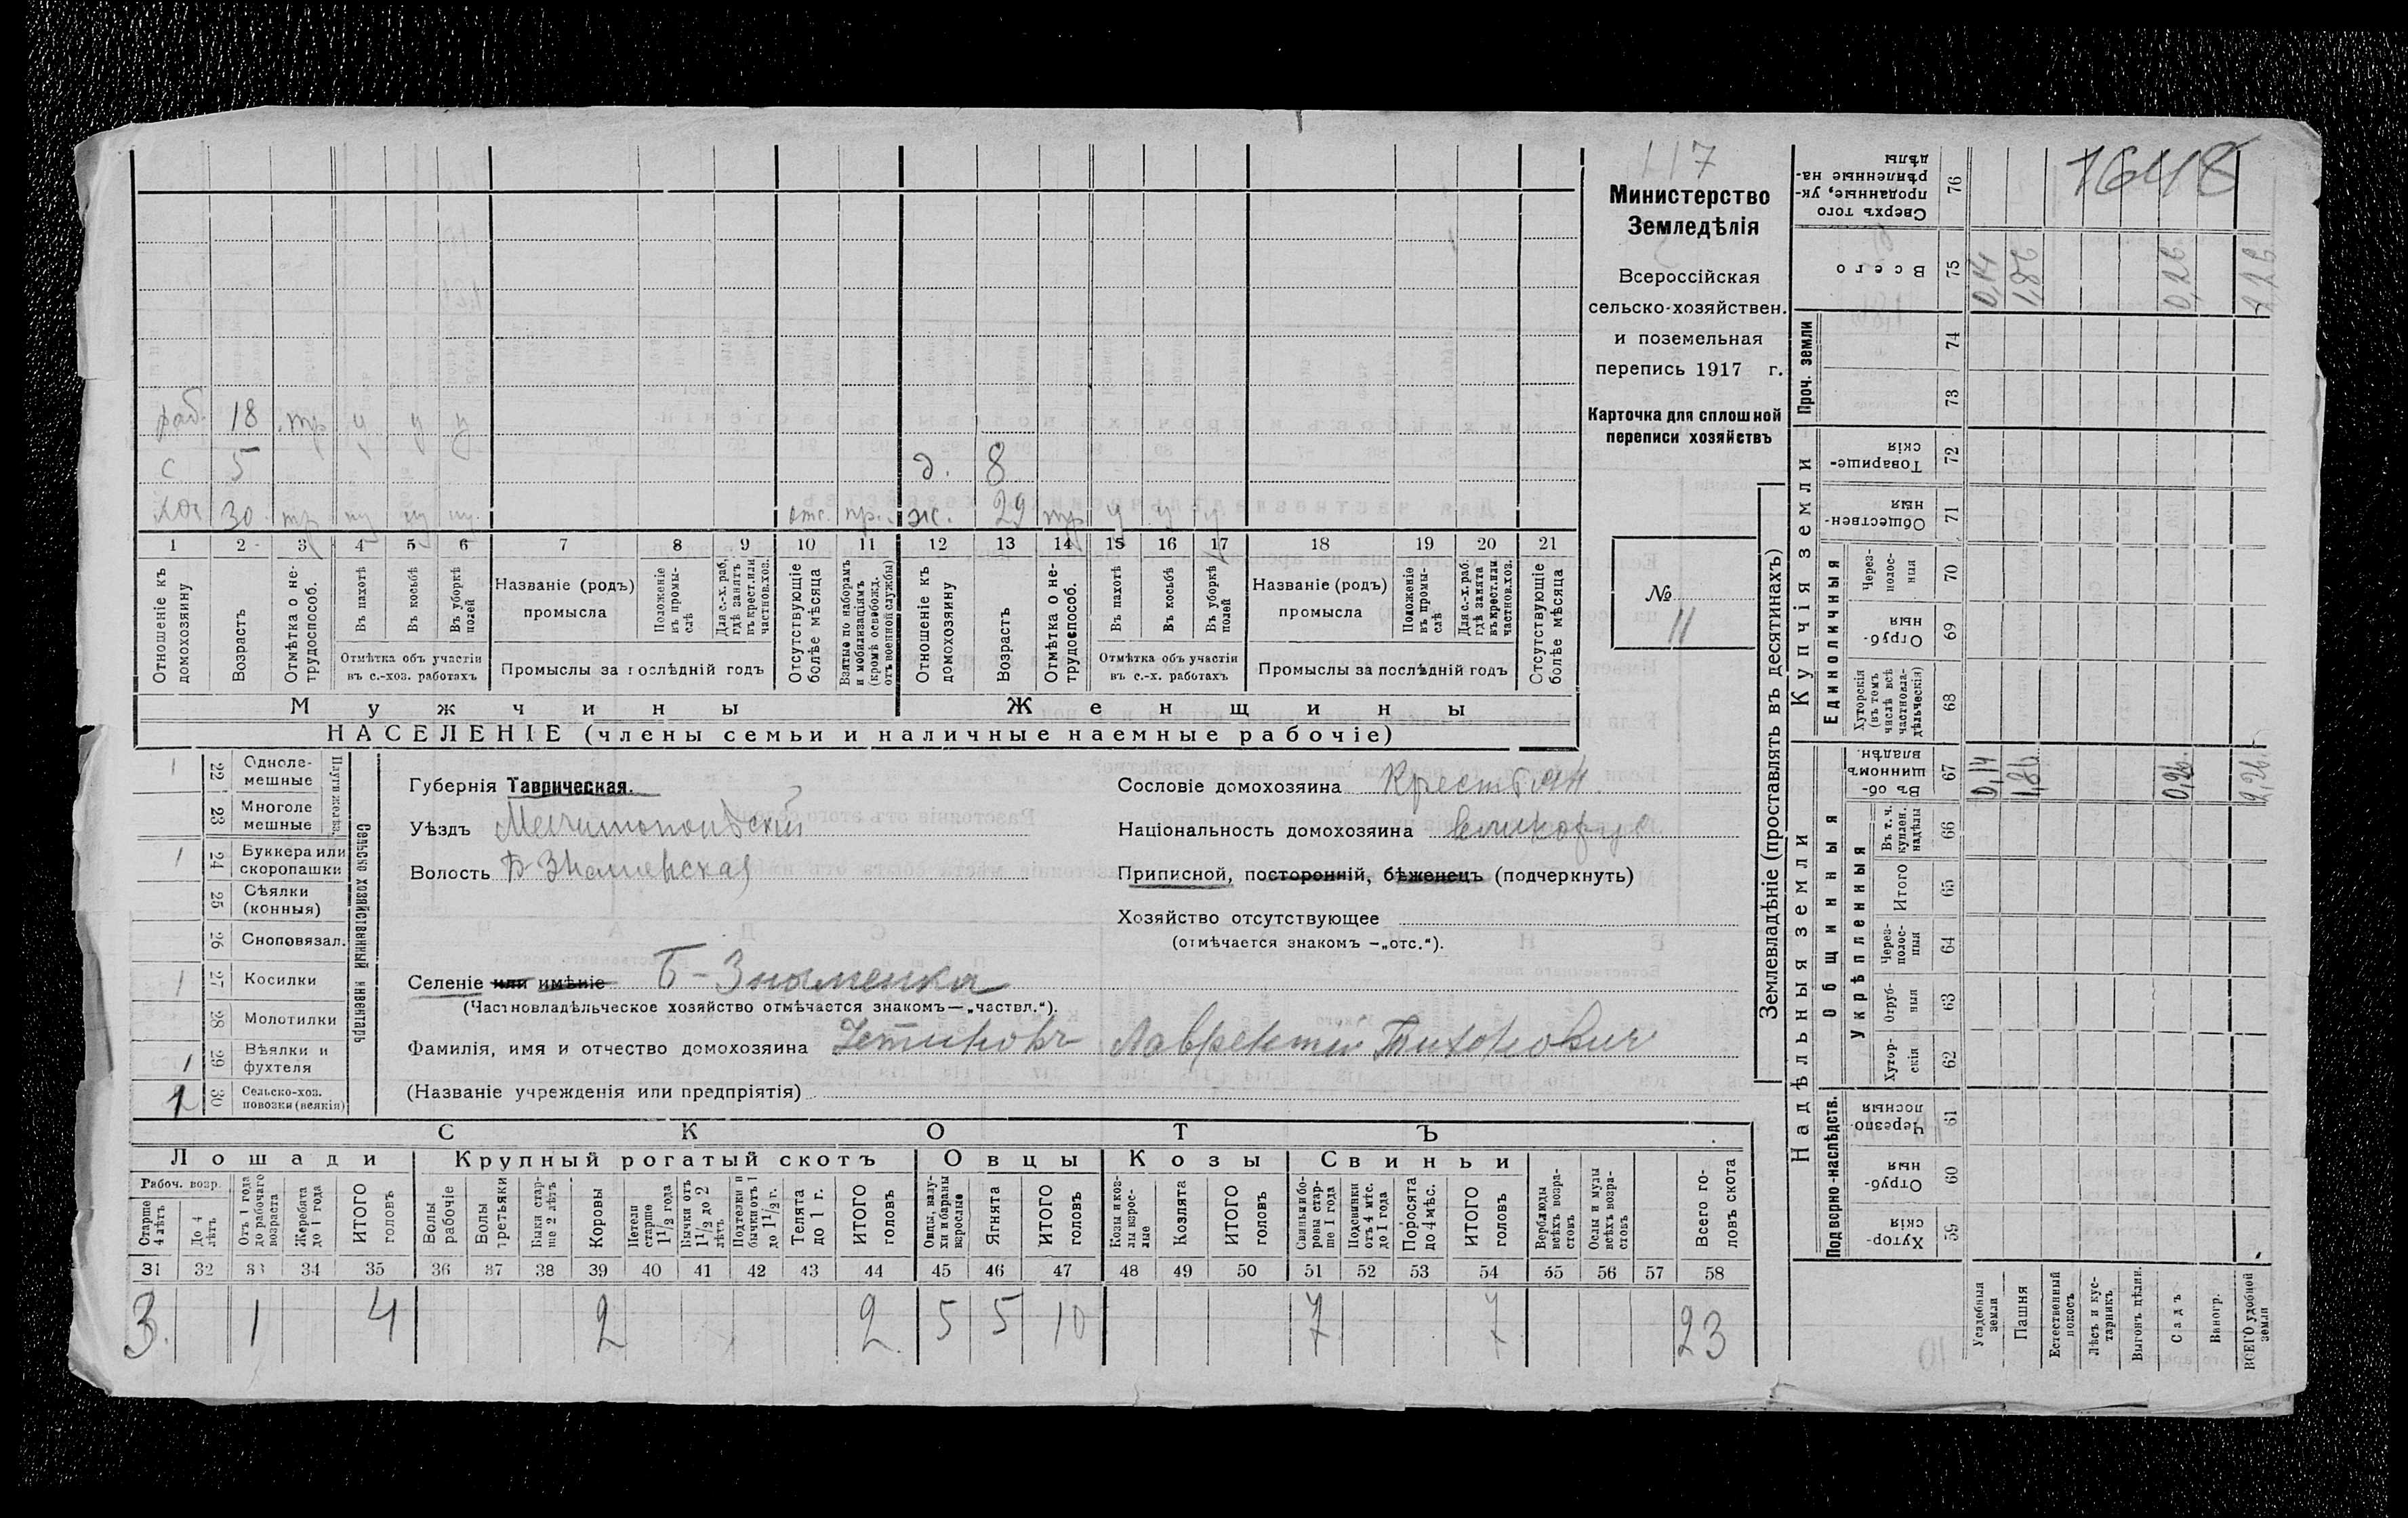 117
Министерство
Земледѣлія
Всероссійская
сельско-хозяйствен.
и поземельная
перепись 1917 г.
Карточка для сплошной
переписи хозяйствъ
№
11
1648
раб. 18 тр у у у
с 5 д. 8
хоз 30 тр отс. пр. ж. 29 тр у у у
1 2 3 4 5 6 7 8 9 10 11 12 13 14 15 16 17 18 19 20 21
Отношеніе къ домохозяину
Возрастъ
Отмѣтка о не-трудоспособ.
Въ пахотѣ
Въ косьбѣ
Въ уборкѣ полей
Отмѣтка объ участіи въ с.-хоз. работахъ
Названіе (родъ) промысла
Положеніе въ промы-слѣ
Для с.-х. раб. гдѣ занятъ въ крест. или частнов. хоз.
Промыслы за послѣдній годъ
Отсутствующіе болѣе мѣсяца
Взятые по наборамъ и мобилизаціямъ (кромѣ освобожд. отъ военной службы)
Отношеніе къ домохозяину
Возрастъ
Отмѣтка о не-трудоспособ.
Въ пахотѣ
Въ косьбѣ
Въ уборкѣ полей
Отмѣтка объ участіи въ с.-х. работахъ
Названіе (родъ) промысла
Положеніе въ промы-слѣ
Для с.-х. раб. гдѣ занята въ крест. или частнов. хоз.
Промыслы за послѣдній годъ
Отсутствующіе болѣе мѣсяца
Мужчины Женщины
НАСЕЛЕНІЕ (члены семьи и наличные наемные рабочіе)
Сельско хозяйственный инвентарь
Плуги желѣз.
1 22 Однолемешные
23 Многолемешные
1 24 Буккера или скоропашки
25 Сѣялки (конныя)
26 Сноповязал.
1 27 Косилки
28 Молотилки
1 29 Вѣялки и фухтеля
2 30 Сельско-хоз. повозки (всякія)
Губернія Таврическая.
Уѣздъ Мелитопольскій
Волость Б-Знаменская
Сословіе домохозяина Крестьян
Національность домохозяина великорус
Приписной, посторонній, бѣженецъ (подчеркнуть)
Хозяйство отсутствующее
(отмѣчается знакомъ —„отс.“).
Селеніе или имѣніе Б-Знаменка
(Частновладѣльческое хозяйство отмѣчается знакомъ—„частвл.“).
Фамилія, имя и отчество домохозяина Лаврентій Тихоновичъ
(Названіе учрежденія или предпріятія)
СКОТЪ
Лошади Крупный рогатый скотъ Овцы Козы Свиньи
Рабоч. возр.
Старше 4 лѣтъ
До 4 лѣтъ
Отъ 1 года до рабочаго возраста
Жеребята до 1 года
ИТОГО головъ
Волы рабочіе
Волы третьяки
Быки старше 2 лѣтъ
Коровы
Нетели старше 1 1/2 года
Бычки отъ 1 1/2 до 2 лѣтъ
Подтолки и бычки отъ 1 до 1 1/2 г.
Телята до 1 г.
ИТОГО головъ
Овцы, валухи и бараны взрослые
Ягнята
ИТОГО головъ
Козы и козлы взрослые
Козлята
ИТОГО головъ
Свиньи и боровы старше 1 года
Подсвинки отъ 4 мѣс. до 1 года
Поросята до 4 мѣс.
ИТОГО головъ
Верблюды всѣхъ возрастовъ
Ослы и мулы всѣхъ возрастовъ
Всего головъ скота
31 32 33 34 35 36 37 38 39 40 41 42 43 44 45 46 47 48 49 50 51 52 53 54 55 56 57 58
3. 1 4 2 2. 5 5 10 7 7 23
Землевладѣніе (проставлять въ десятинахъ)
Надѣльныя земли Купчія земли Проч. земли
Подворно-наслѣдств. Общинныя Единоличныя
Укрѣпленныя
59 Хуторскія
60 Отрубныя
61 Черезполосныя
62 Хуторскія
63 Отрубныя
64 Черезполосныя
65 Итого
66 Въ т. ч. куплен. надѣлы
67 Въ общинномъ владѣн.
68 Хуторскія (въ томъ числѣ всѣ частновладѣльческія)
69 Отрубныя
70 Черезполосныя
71 Общественныя
72 Товарищескія
73
74
75 Всего
76 Сверхъ того проданные, укрѣпленные надѣлы
Усадебныя земли 0,14 0,14
Пашня 1,86 1,86
Естественный покосъ
Лѣсъ и кустарникъ
Выгонъ цѣлин.
Садъ 0,26 0,26
Виногр.
ВСЕГО удобной земли 2,26 2,26